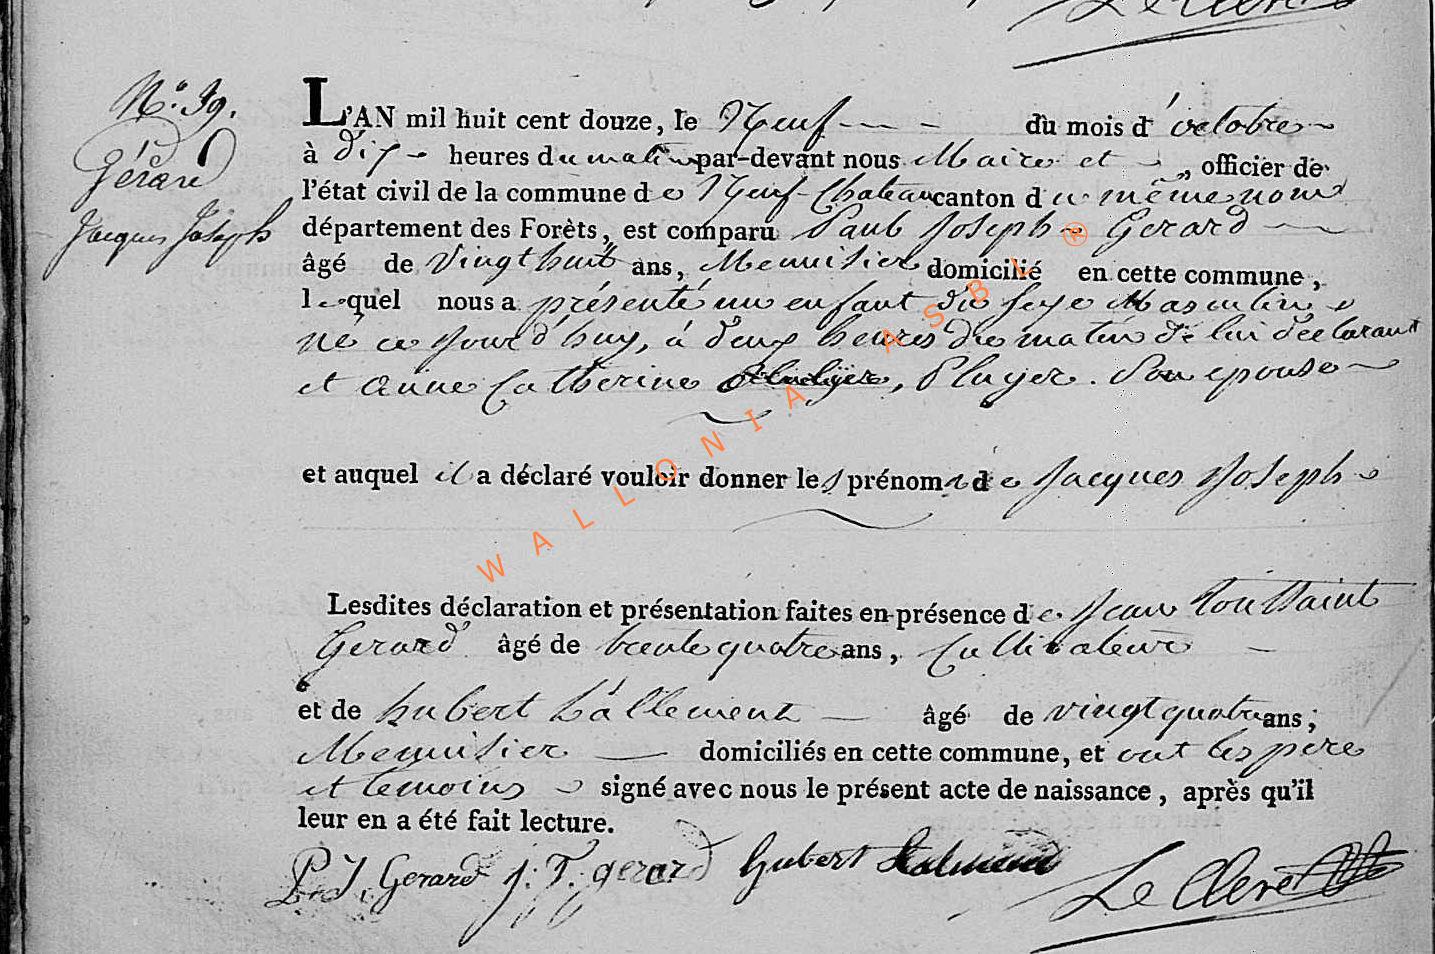 N.° 39.
Gérard
Jacques Joseph
L'AN mil huit cent douze, le Neuf du mois d'octobre
à dix heures du matin par-devant nous Maire et , officier de
l'état civil de la commune de Neuf-Chateau canton du même nom
département des Forêts, est comparu Paul Joseph Gerard
âgé de vingt huit ans, Menuisier domicilié en cette commune,
lequel nous a présenté un enfant du sexe Masculin
né ce jour d'huy, à deux heures du matin de lui déclarant
et Anne Catherine , Pluyer. Son epouse
et auquel il a déclaré vouloir donner les prénoms de Jacques Joseph
Lesdites déclaration et présentation faites en présence de Jean Toussaint
Gerard âgé de trente quatre ans, Cultivateur
et de hubert Lallement âgé de vingt quatre ans;
Menuisier domiciliés en cette commune, et ont les père
et temoins signé avec nous le présent acte de naissance, après qu'il
leur en a été fait lecture.
P. J. Gerard J. T. gerard hubert Le Clere
WALLONIA ASBL ®